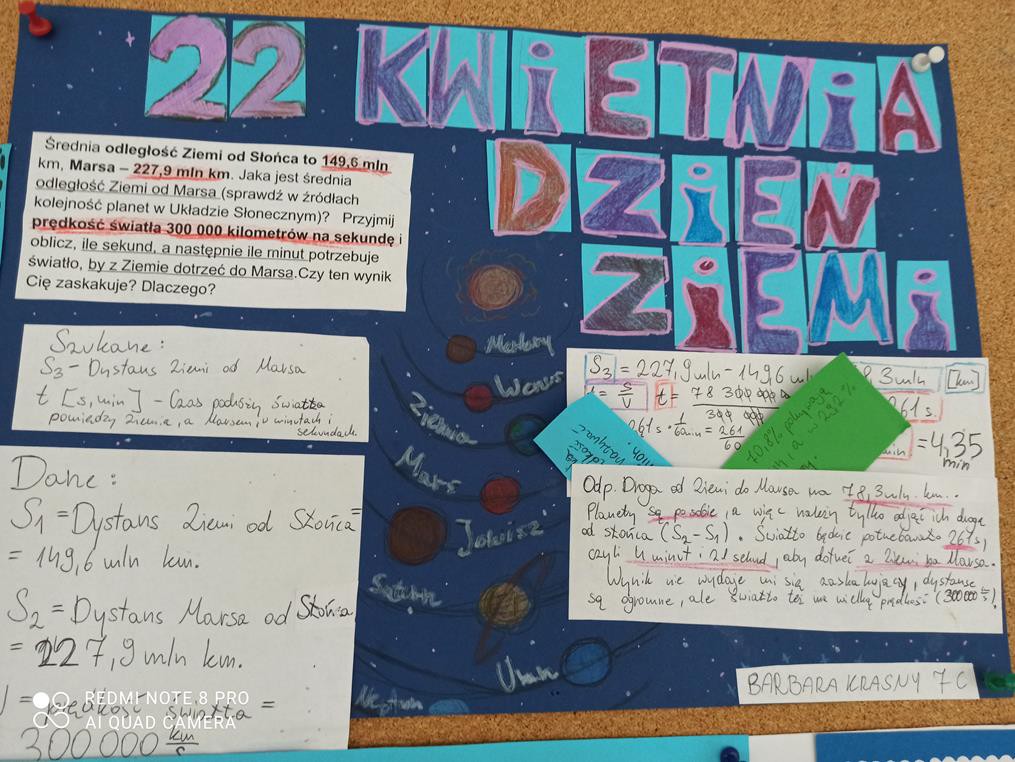 22 KWIETNIA
DZIEŃ
ZIEMI
Średnia odległość Ziemi od Słońca to 149,6 mln
km, Marsa – 227,9 mln km. Jaka jest średnia
odległość Ziemi od Marsa (sprawdź w źródłach
kolejność planet w Układzie Słonecznym)? Przyjmij
prędkość światła 300 000 kilometrów na sekundę i
oblicz, ile sekund, a następnie ile minut potrzebuje
światło, by z Ziemie dotrzeć do Marsa.Czy ten wynik
Cię zaskakuje? Dlaczego?
Szukane:
S3 – Dystans Ziemi od Marsa
t [s, min] – Czas podróży światła
pomiędzy Ziemią, a Marsem, w minutach i
sekundach.
Dane:
S1 = Dystans Ziemi od Słońca =
= 149,6 mln km.
S2 = Dystans Marsa od Słońca
= 227,9 mln km.
= prędkość światła =
300 000 km/s
Merkury
Wenus
Ziemia
Mars
Jowisz
Saturn
Uran
Neptun
S3 = 227,9 mln - 149,6 mln 8,3 mln [km]
t = S/V t = 78 300 000
300 000 261 s.
261 s · 1/60 min = 261/60 = 4,35
min
70,8%
292%
Odp. Droga od Ziemi do Marsa ma 78,3 mln. km..
Planety są po sobie, a więc należy tylko odjąć ich drogę
od słońca (S2 - S1). Światło będzie potrzebowało 261 s,
czyli 4 minut i 21 sekund, aby dotrzeć z Ziemi na Marsa.
Wynik nie wydaje mi się zaskakujący, dystanse
są ogromne, ale światło też ma wielką prędkość (300 000 km/s).
BARBARA KRASNY 7C
REDMI NOTE 8 PRO
AI QUAD CAMERA